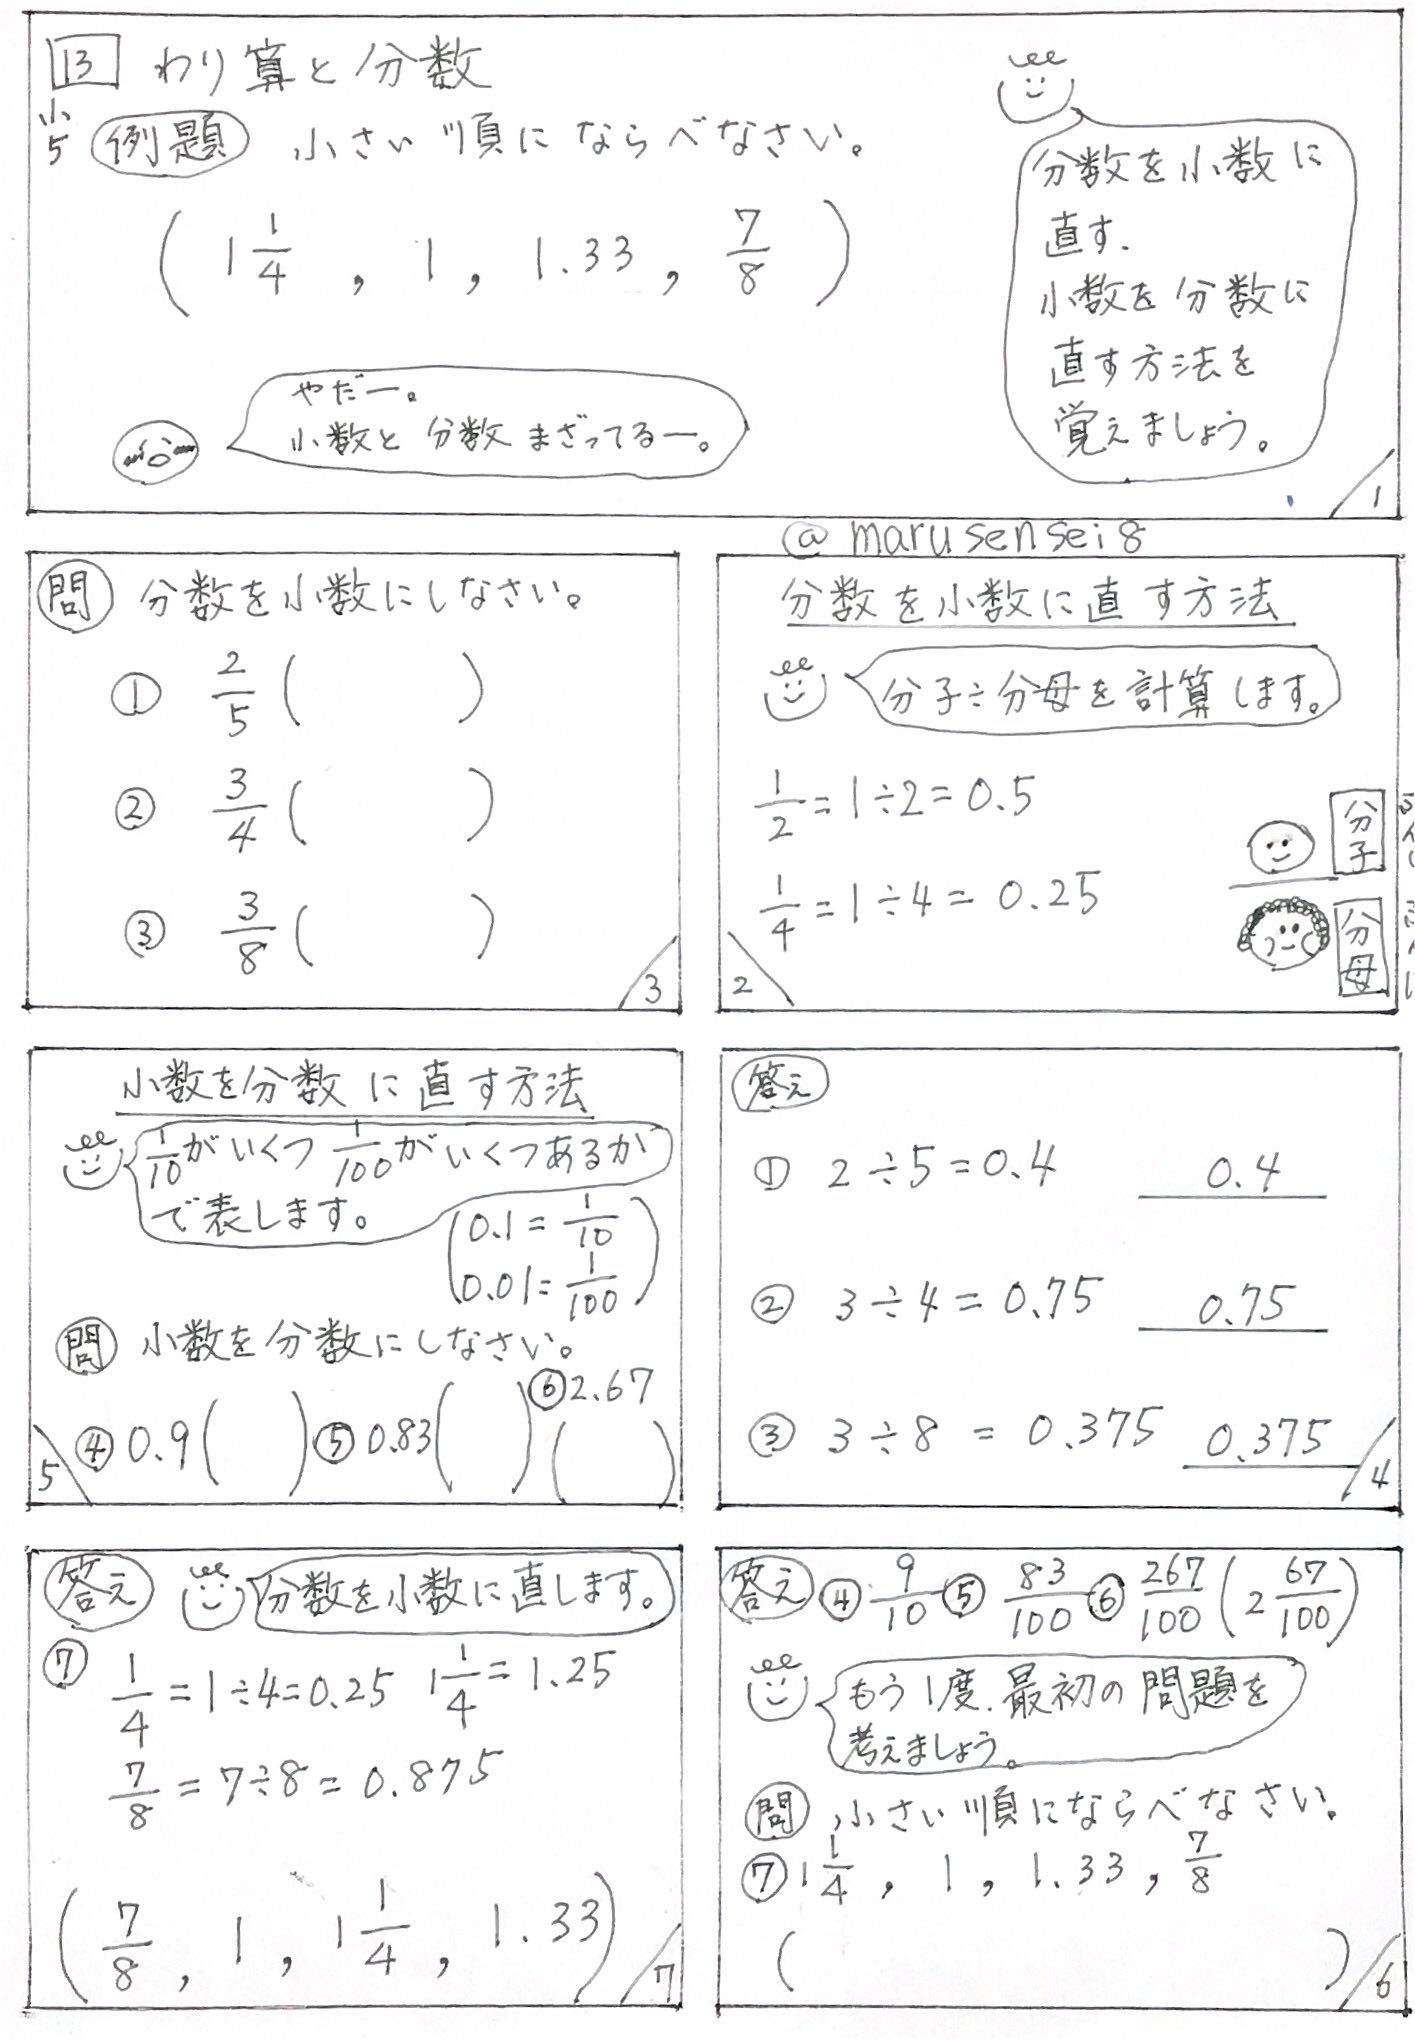 13 わり算と分数
小5 例題 小さい順にならべなさい。
( 1 1/4 , 1 , 1.33 , 7/8 )
分数を小数に
直す.
小数を分数に
直す方法を
覚えましょう。
やだー。
小数と分数まざってるー。
1
@marusensei8
分数を小数に直す方法
分子÷分母を計算します。
1/2 = 1÷2 = 0.5
1/4 = 1÷4 = 0.25
分子
分母
2
問 分数を小数にしなさい。
① 2/5 (     )
② 3/4 (     )
③ 3/8 (     )
3
答え
① 2÷5=0.4 0.4
② 3÷4=0.75 0.75
③ 3÷8 = 0.375 0.375
4
小数を分数に直す方法
1/10がいくつ 1/100がいくつあるか
で表します。
(0.1 = 1/10
0.01 = 1/100)
問 小数を分数にしなさい。
④ 0.9 (     ) ⑤ 0.83 (     ) ⑥ 2.67 (     )
5
答え ④ 9/10 ⑤ 83/100 ⑥ 267/100 (2 67/100)
もう1度、最初の問題を
考えましょう。
問 小さい順にならべなさい。
⑦ 1 1/4 , 1 , 1.33 , 7/8
(     )
6
答え 分数を小数に直します。
⑦ 1/4 = 1÷4=0.25 1 1/4 = 1.25
7/8 = 7÷8 = 0.875
( 7/8 , 1 , 1 1/4 , 1.33 )
7